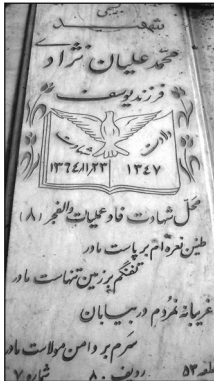 بسیجی
شهید
محمد علیان نژادی
فرزند یوسف
ولادت شهادت
۱۳۴۷ ۱۳۶۴/۱۱/۲۳
محل شهادت فاو عملیات والفجر (۸)
طنین نعره‌ام بر پاست مادر
تفنگم بر زمین تنهاست مادر
غریبانه نمردم در بیابان
سرم بر دامن مولاست مادر
قطعه ۵۳ ردیف ۸۰ شماره ۷